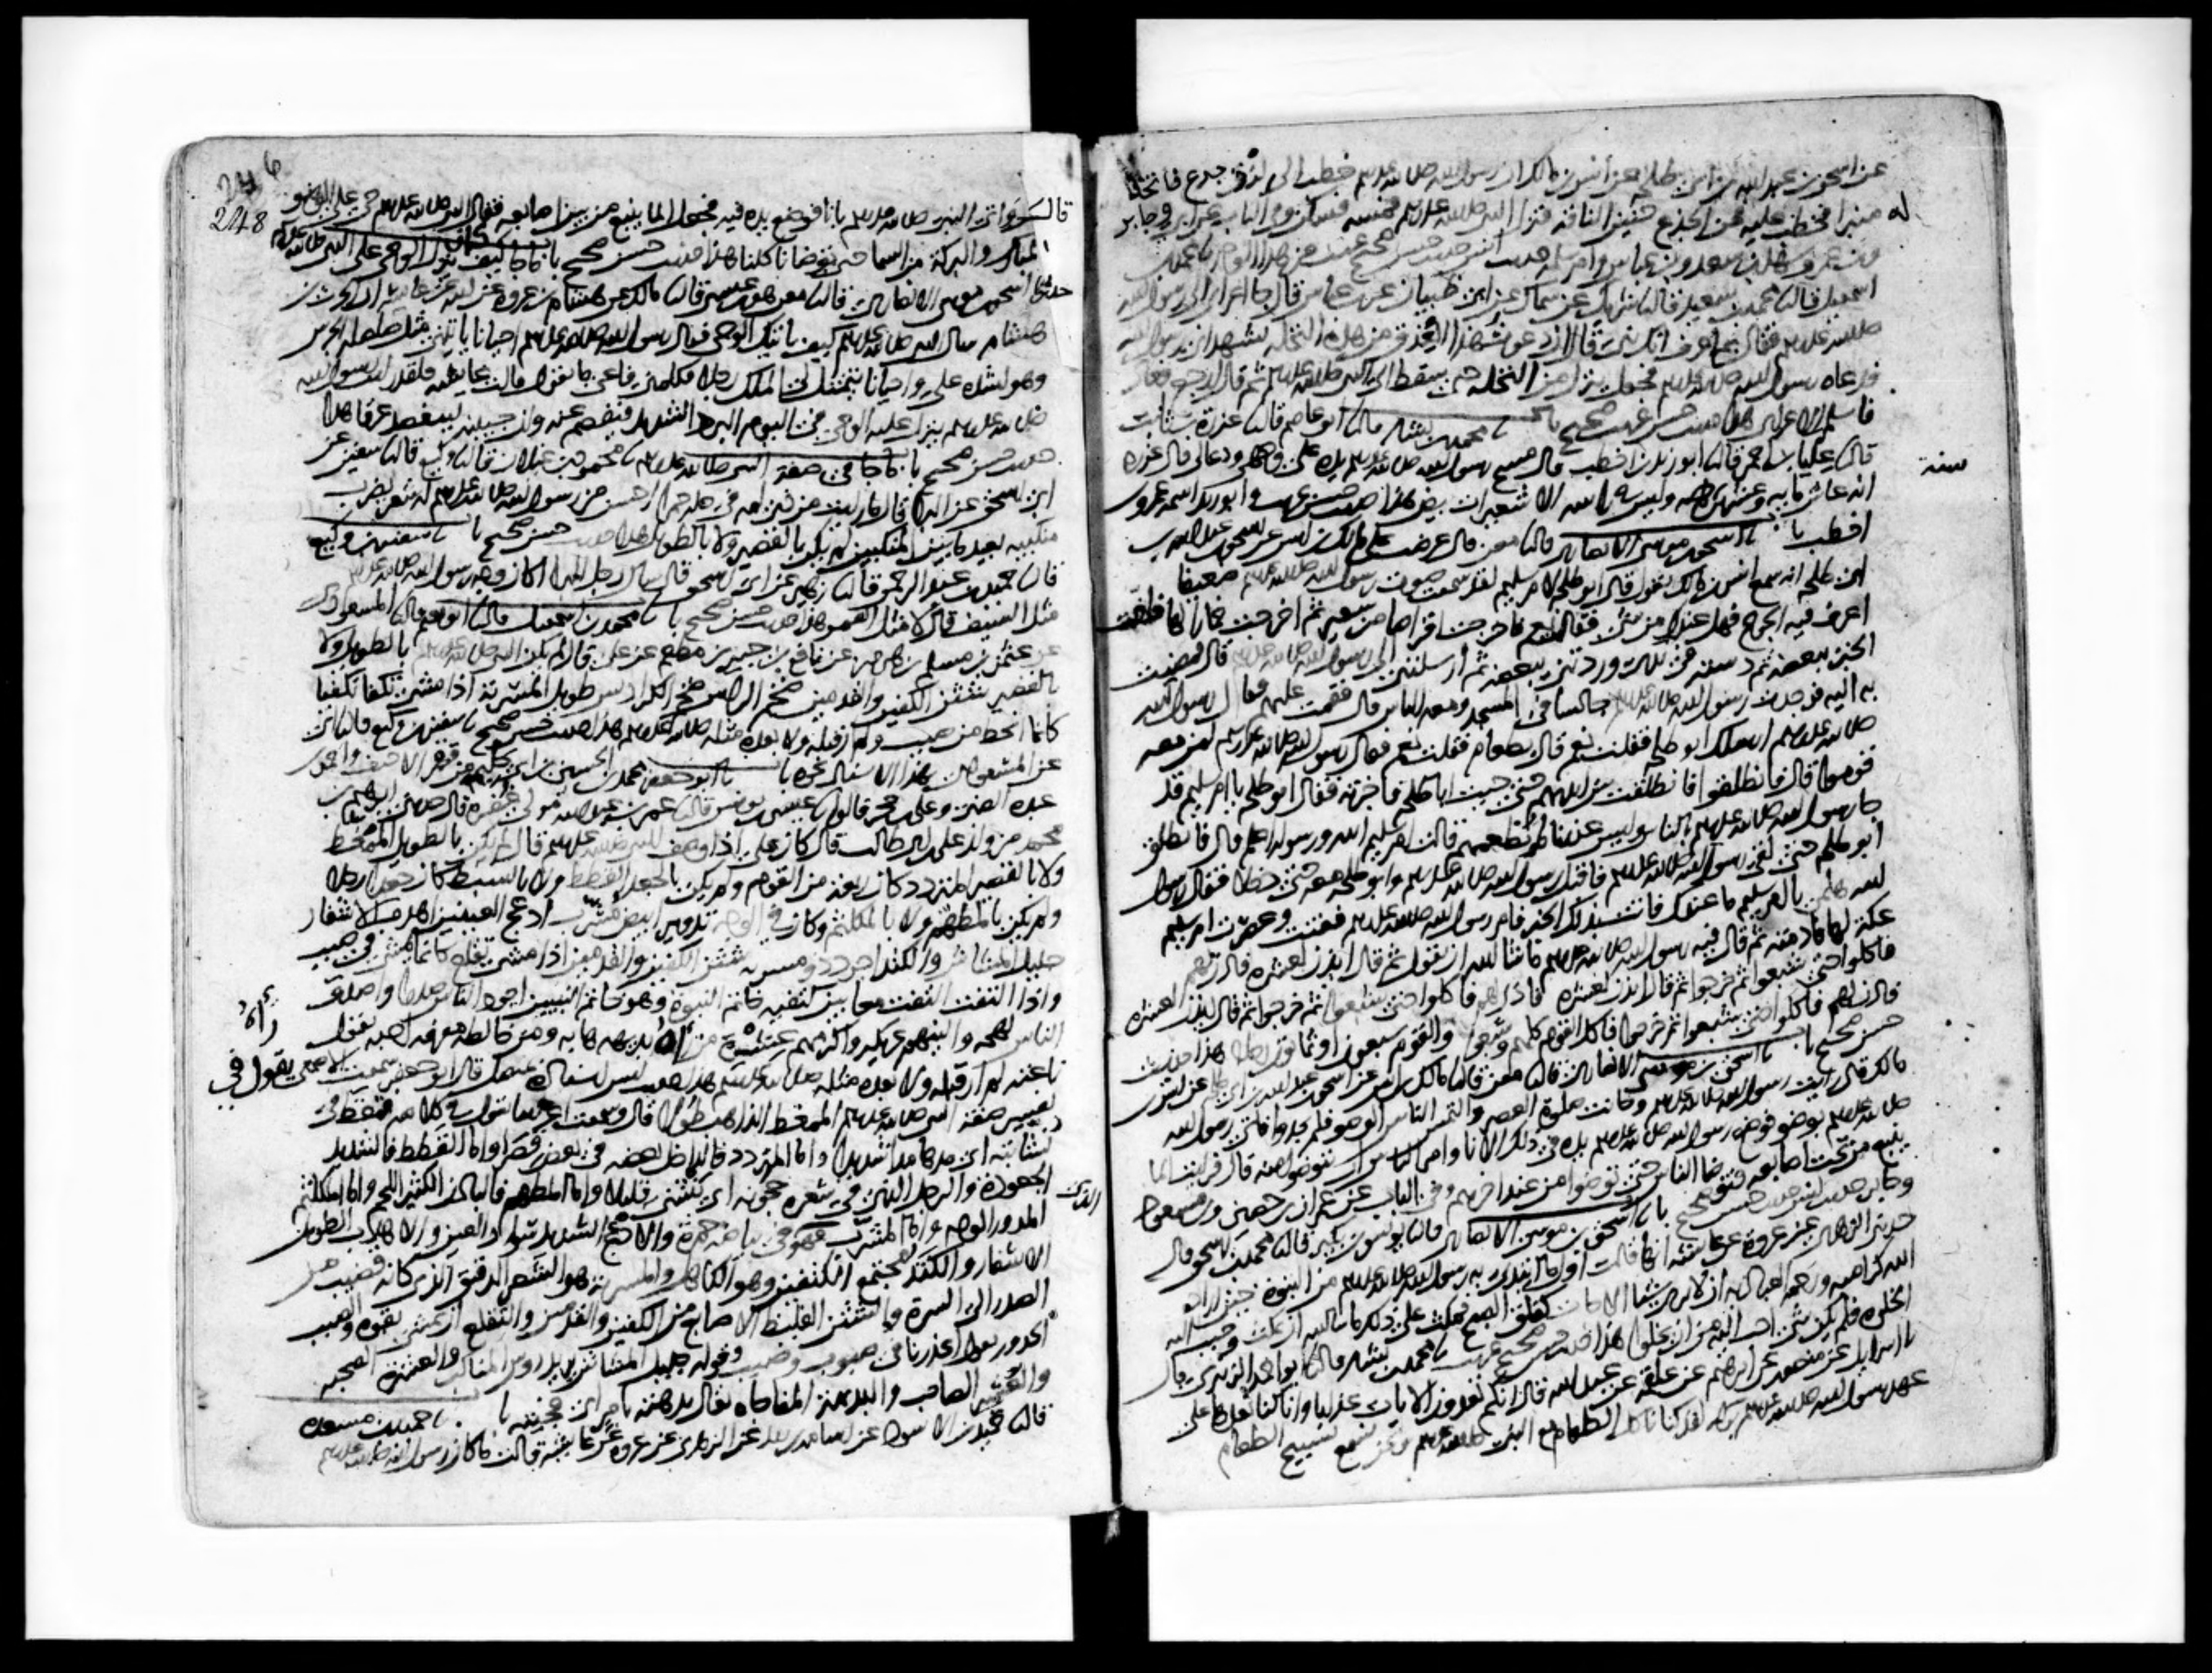 عن اسحق بن عبد الله بن ابي طلحة عن انس بن مالك ان رسول الله صلى الله عليه وسلم خطب الى لزق جذع فاتخذوا
له
منبرا فخطب عليه فحن الجذع حنين الناقة فنزل النبي صلى الله عليه وسلم فمسه فسكن وفي الباب عن ابي وجابر
وابن عمر وسهل بن سعد وابن عباس وام سلمة حديث انس حديث حسن صحيح غريب من هذا الوجه نا محمد بن
اسمعيل قال نا محمد بن سعيد قال نا شريك عن سماك عن ابي ظبيان عن ابن عباس قال جا اعرابي الى رسول الله
صلى الله عليه وسلم فقال بم اعرف انك نبي قال ان دعوت هذا العذق من هذه النخلة تشهد اني رسول الله
فدعاه رسول الله صلى الله عليه وسلم فجعل ينزل من النخلة حتى سقط الى النبي صلى الله عليه وسلم ثم قال ارجع فعاد
فاسلم الاعرابي هذا حديث حسن غريب صحيح باب نا محمد بن بشار قال نا ابو عاصم قال نا عزرة بن ثابت
قال نا علبا بن احمر قال نا ابو زيد بن اخطب قال مسح رسول الله صلى الله عليه وسلم يده على وجهي ودعا لي قال عزرة
سنة
انه عاش مايه وعشرين وليس في راسه الا شعيرات بيض هذا حديث حسن غريب وابو زيد اسمه عمرو بن
اخطب باب نا اسحق بن موسى الانصاري قال نا معن قال عرضت على مالك بن انس عن اسحق بن عبد الله بن
ابي طلحة انه سمع انس بن مالك يقول قال ابو طلحة لام سليم لقد سمعت صوت رسول الله صلى الله عليه وسلم ضعيفا
اعرف فيه الجوع فهل عندك من شي فقالت نعم فاخرجت اقراصا من شعير ثم اخرجت خمارا لها فلفت
الخبز ببعضه ثم دسته في يدي وردتني ببعضه ثم ارسلتني الى رسول الله صلى الله عليه وسلم قال فذهبت
به اليه فوجدت رسول الله صلى الله عليه وسلم جالسا في المسجد ومعه الناس قال فقمت عليهم فقال رسول الله
صلى الله عليه وسلم ارسلك ابو طلحة فقلت نعم قال بطعام فقلت نعم فقال رسول الله صلى الله عليه وسلم لمن معه
قوموا قال فانطلقوا فانطلقت بين ايديهم حتى جيت ابا طلحة فاخبرته فقال ابو طلحة يا ام سليم قد
جا رسول الله صلى الله عليه وسلم بالناس وليس عندنا ما نطعمهم قالت ام سليم الله ورسوله اعلم قال فانطلق
ابو طلحة حتى لقي رسول الله صلى الله عليه وسلم فاقبل رسول الله صلى الله عليه وسلم وابو طلحة معه حتى دخلا فقال رسول
الله هلمي يا ام سليم ما عندك فاتته بذلك الخبز فامر رسول الله صلى الله عليه وسلم ففت وعصرت ام سليم
عكة لها فادمته ثم قال فيه رسول الله صلى الله عليه وسلم ما شا الله ان يقول ثم قال ايذن لعشرة فاذن لهم
فاكلوا حتى شبعوا ثم خرجوا ثم قال ايذن لعشرة فاذن لهم فاكلوا حتى شبعوا ثم خرجوا ثم قال ايذن لعشرة
فاذن لهم فاكلوا حتى شبعوا ثم خرجوا فاكل القوم كلهم وشبعوا والقوم سبعون او ثمانون رجلا هذا حديث
حسن صحيح باب نا اسحق بن موسى الانصاري قال نا معن قال نا مالك بن انس عن اسحق بن عبد الله بن ابي طلحة عن انس بن
مالك قال رايت رسول الله صلى الله عليه وسلم وحانت صلوة العصر والتمس الناس الوضو فلم يجدوا فاتي رسول الله
صلى الله عليه وسلم بوضو فوضع رسول الله صلى الله عليه وسلم يده في ذلك الانا وامر الناس ان يتوضوا منه قال فرايت الما
ينبع من تحت اصابعه فتوضا الناس حتى توضوا من عند اخرهم وفي الباب عن عمران بن حصين وابن مسعود
وجابر حديث انس حديث حسن صحيح باب نا اسحق بن موسى الانصاري قال نا يونس بن بكير قال نا محمد بن اسحق قال
حدثني الزهري عن عروة عن عايشة انها قالت اول ما ابتدي به رسول الله صلى الله عليه وسلم من النبوة حين اراد
الله كرامته ورحمة العباد به ان لا يرى شيا الا جات كفلق الصبح فمكث على ذلك ما شا الله ان يمكث وحبب اليه
الخلوة فلم يكن شي احب اليه من ان يخلو هذا حديث حسن صحيح غريب نا محمد بن بشار قال نا ابو احمد الزبيري قال
نا اسرايل عن منصور عن ابرهيم عن علقمة عن عبد الله قال انكم تعدون الايات عذابا وانا كنا نعدها على
عهد رسول الله صلى الله عليه وسلم بركة لقد كنا ناكل الطعام مع النبي صلى الله عليه وسلم ونحن نسمع تسبيح الطعام
248
قال واتي النبي صلى الله عليه وسلم بانا فوضع يده فيه فجعل الما ينبع من بين اصابعه فقال النبي صلى الله عليه وسلم حي على الوضو
المبارك والبركة من السما حتى توضانا كلنا هذا حديث حسن صحيح باب ما جا كيف كان ينزل الوحي على النبي صلى الله عليه وسلم
حدثنا اسحق بن موسى الانصاري قال نا معن هو ابن عيسى قال نا مالك عن هشام بن عروة عن ابيه عن عايشة ان الحرث بن
هشام سال النبي صلى الله عليه وسلم كيف ياتيك الوحي فقال رسول الله صلى الله عليه وسلم احيانا ياتيني مثل صلصلة الجرس
وهو اشده علي واحيانا يتمثل لي الملك رجلا فيكلمني فاعي ما يقول قالت عايشة فلقد رايت رسول الله
صلى الله عليه وسلم ينزل عليه الوحي في اليوم البرد الشديد فيفصم عنه وان جبينه ليتفصد عرقا هذا
حديث حسن صحيح باب ما جا في صفة النبي صلى الله عليه وسلم نا محمود بن غيلان قال نا وكيع قال نا سفين عن
ابي اسحق عن البرا قال ما رايت من ذي لمة في حلة حمرا احسن من رسول الله صلى الله عليه وسلم له شعر يضرب
منكبيه بعيد ما بين المنكبين لم يكن بالقصير ولا بالطويل هذا حديث حسن صحيح باب نا سفين بن وكيع
قال نا حميد بن عبد الرحمن قال نا زهير عن ابي اسحق قال سال رجل البرا اكان وجه رسول الله صلى الله عليه وسلم
مثل السيف قال لا مثل القمر هذا حديث حسن صحيح باب نا محمد بن اسمعيل قال نا ابو نعيم قال نا المسعودي
عن عثمن بن مسلم بن هرمز عن نافع بن جبير بن مطعم عن علي قال لم يكن النبي صلى الله عليه وسلم بالطويل ولا
بالقصير شثن الكفين والقدمين ضخم الراس ضخم الكراديس طويل المسربة اذا مشى تكفا تكفيا
كانما انحط من صبب لم ار قبله ولا بعده مثله صلى الله عليه وسلم هذا حديث حسن صحيح نا سفين بن وكيع قال نا ابي
عن المسعودي بهذا الاسناد نحوه باب نا ابو جعفر محمد بن الحسين بن ابي حليمة من قصر الاحنف واحمد بن
عبدة الضبي وعلي بن حجر قالوا نا عيسى بن يونس قال نا عمر بن عبد الله مولى غفرة قال حدثني ابرهيم بن
محمد من ولد علي بن ابي طالب قال كان علي اذا وصف النبي صلى الله عليه وسلم قال لم يكن بالطويل الممغط
ولا بالقصير المتردد وكان ربعة من القوم ولم يكن بالجعد القطط ولا بالسبط كان جعدا رجلا
ولم يكن بالمطهم ولا بالمكلثم وكان في الوجه تدوير ابيض مشرب ادعج العينين اهدب الاشفار
جليل المشاش والكتد اجرد ذو مسربة شثن الكفين والقدمين اذا مشى تقلع كانما يمشي في صبب
واذا التفت التفت معا بين كتفيه خاتم النبوة وهو خاتم النبيين اجود الناس صدرا واصدق
رآه
الناس لهجة والينهم عريكة واكرمهم عشرة من رآه بديهة هابه ومن خالطه معرفة احبه يقول
ناعته لم ار قبله ولا بعده مثله صلى الله عليه وسلم هذا حديث ليس اسناده بمتصل قال ابو جعفر سمعت الاصمعي يقول في
تفسير صفة النبي صلى الله عليه وسلم الممغط الذاهب طولا قال وسمعت اعرابيا يقول في كلامه تمغط في
نشابته اي مدها مدا شديدا واما المتردد فالداخل بعضه في بعض قصرا واما القطط فالشديد
الجعودة والرجل الذي في شعره حجونة اي ينثني قليلا واما المطهم فالبادن الكثير اللحم واما المكلثم
المدور الوجه واما المشرب فهو في بياضه حمرة والادعج الشديد سواد العين والاهدب الطويل
الاشفار والكتد مجتمع الكتفين وهو الكاهل والمسربة هو الشعر الدقيق الذي كانه قضيب من
الصدر الى السرة والشثن الغليظ الاصابع من الكفين والقدمين والتقلع ان يمشي بقوة والصبب
الحدور يقول انحدرنا في صبوب وصبب وقوله جليل المشاش يريد روس المناكب والعشرة الصحبة
والعشير الصاحب والبديهة المفاجاة يقال بدهته بامر اي فجيته باب نا حميد بن مسعدة
قال نا حميد بن الاسود عن اسامة بن زيد عن الزهري عن عروة عن عايشة قالت ما كان رسول الله صلى الله عليه وسلم